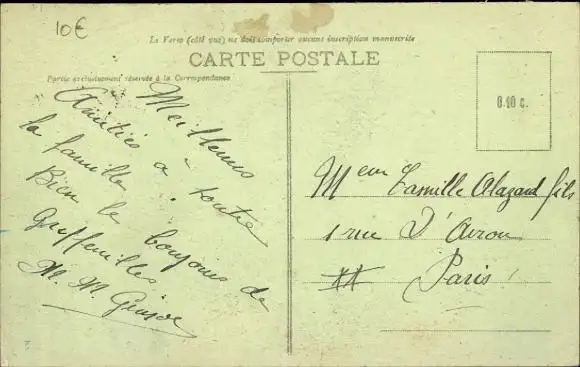 10€
Le Verso (côté vue) ne doit comporter aucune inscription manuscrite
CARTE POSTALE
Partie exclusivement réservée à la Correspondance
0.10 c.
Meilleures
Amitiés a toute
la famille.
Bien le bonjours de
M. M.
Meur Camille Alazard fils
1 rue D'Avron
XX Paris